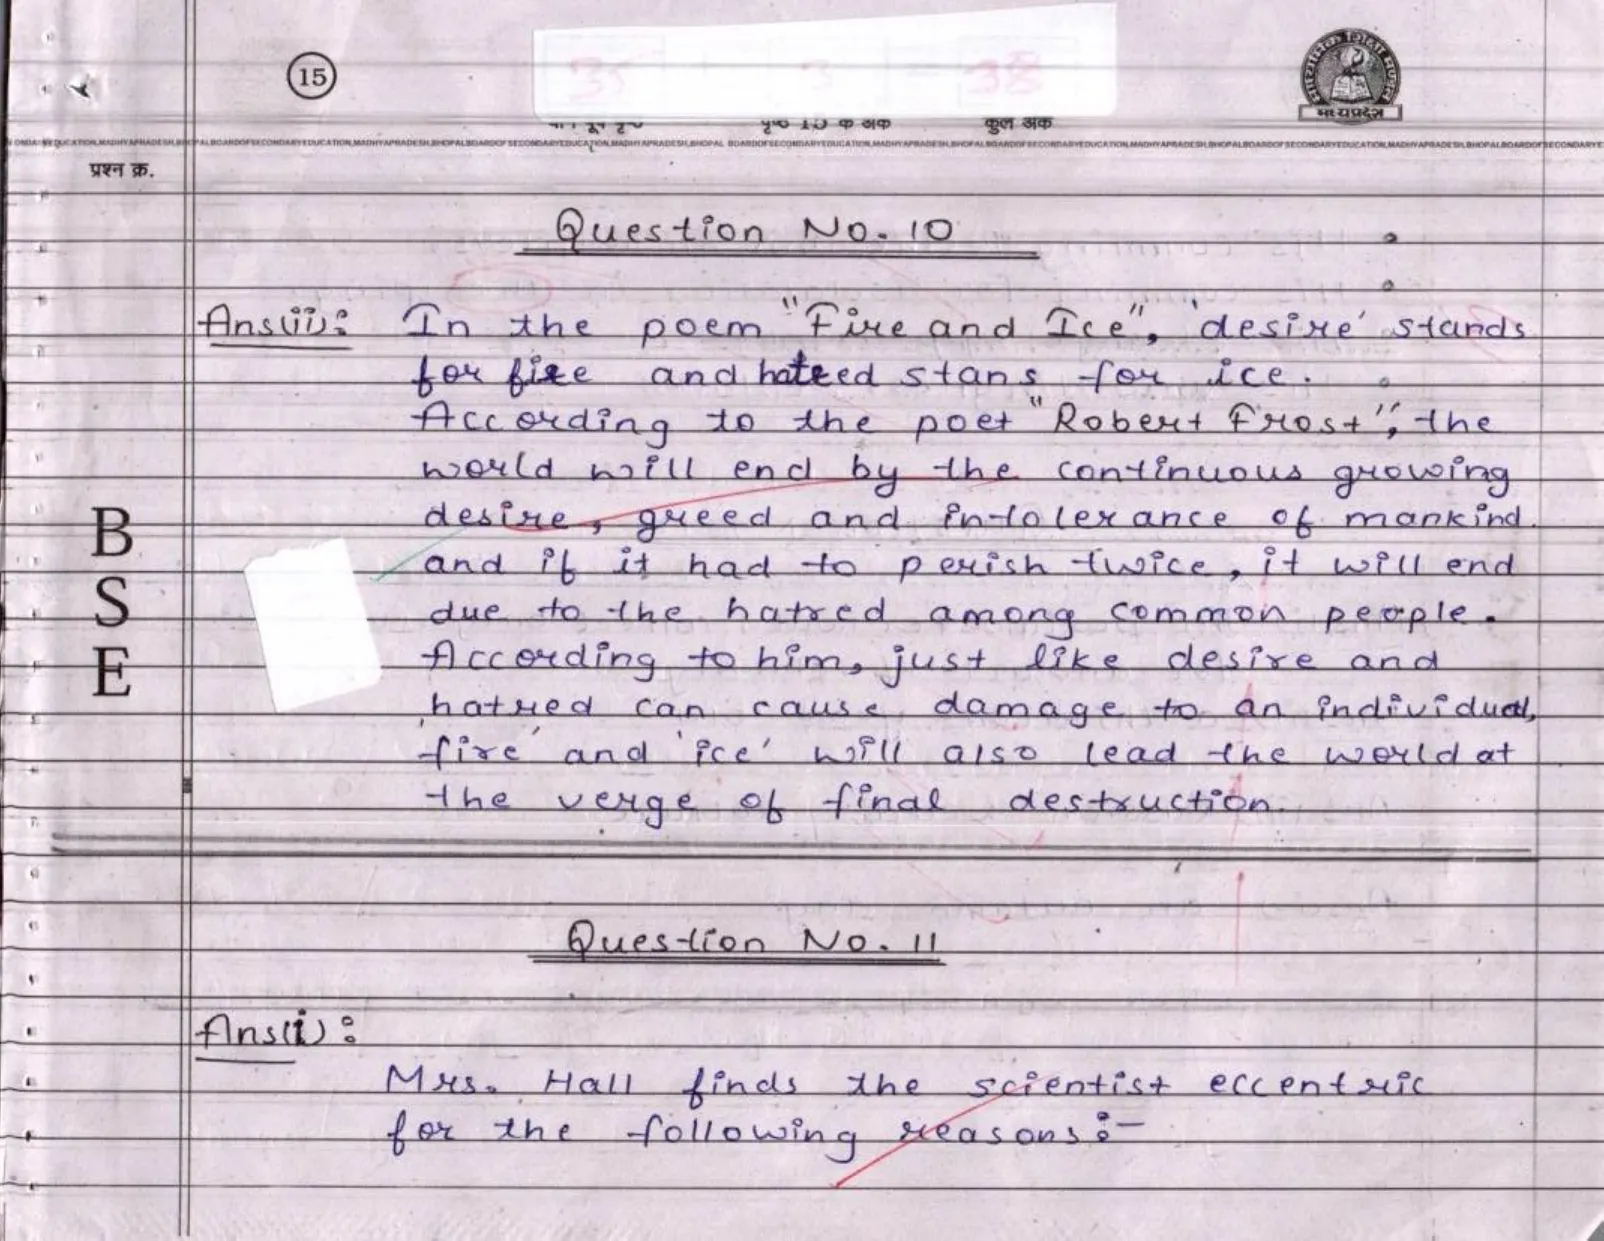 15
35 3 38
पृष्ठ 15 के अंक कुल अंक
मध्यप्रदेश
BOARD OF SECONDARY EDUCATION, MADHYA PRADESH, BHOPAL
प्रश्न क्र.
Question No. 10
Ans(ii): In the poem "Fire and Ice", 'desire' stands
for fire and hatred stans for ice.
According to the poet "Robert Frost", the
world will end by the continuous growing
desire, greed and intolerance of mankind
and if it had to perish twice, it will end
due to the hatred among common people.
According to him, just like desire and
hatred can cause damage to an individual,
'fire' and 'ice' will also lead the world at
the verge of final destruction.
B
S
E
Question No. 11
Ans(i):
Mrs. Hall finds the scientist eccentric
for the following reasons:-